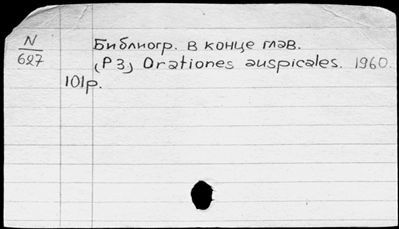 N
627
Библиогр. в конце глав.
(P3) Orationes auspicales. 1960.
101p.